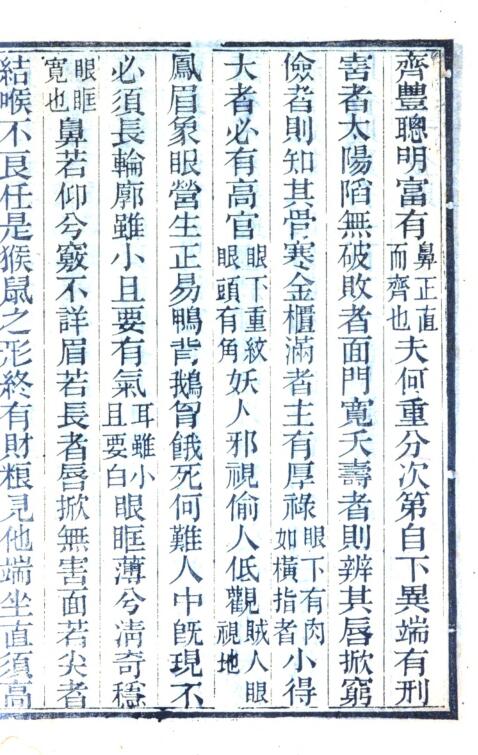 齊豐聰明富有鼻正直而齊也夫何重分次第自下異端有刑
害者太陽陷無破敗者面門寬夭壽者則辨其唇掀窮
儉者則知其骨寒金櫃滿者主有厚祿眼下有肉如橫指者小得
大者必有高官眼下重紋眼頭有角妖人邪視偷人低觀賊人眼視地
鳳眉象眼營生正易鴨背鵝胷餓死何難人中既現不
必須長輪廓雖小且要有氣耳雖小且要白眼眶薄兮淸奇穩
眼眶寬也鼻若仰兮竅不詳眉若長者唇掀無害面若尖者
結喉不良任是猴鼠之形終有財粮見他端坐直須高